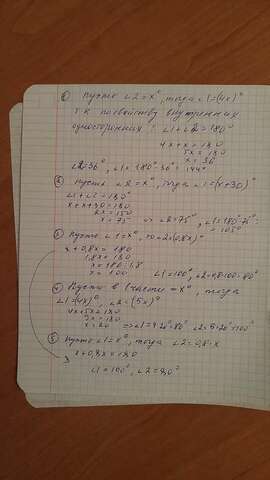 ① Пусть ∠2=x°, тогда ∠1=(4x)°
т.к по свойству внутренних
односторонних: ∠1+∠2=180°
4x+x=180
5x=180
x=36
∠2=36°, ∠1=180°-36°=144°
② Пусть ∠2=x°, тогда ∠1=(x+30)°
∠1+∠2=180°
x+x+30=180
2x=150
x=75 => ∠2=75°, ∠1=180°-75°=
=105°
③ Пусть ∠1=x°, то ∠2=(0,8x)°
x+0,8x=180
1,8x=180
x=180:1,8
x=100 ∠1=100°, ∠2=0,8·100=80°
④ Пусть в 1 части =x°, тогда
∠1=(4x)°, ∠2=(5x)°
4x+5x=180
9x=180
x=20 =>∠1=4·20°=80° ∠2=5·20°=100°
⑤ Пусть ∠1=x°, тогда ∠2=0,8·x
x+0,8x=180
∠1=100°, ∠2=80°